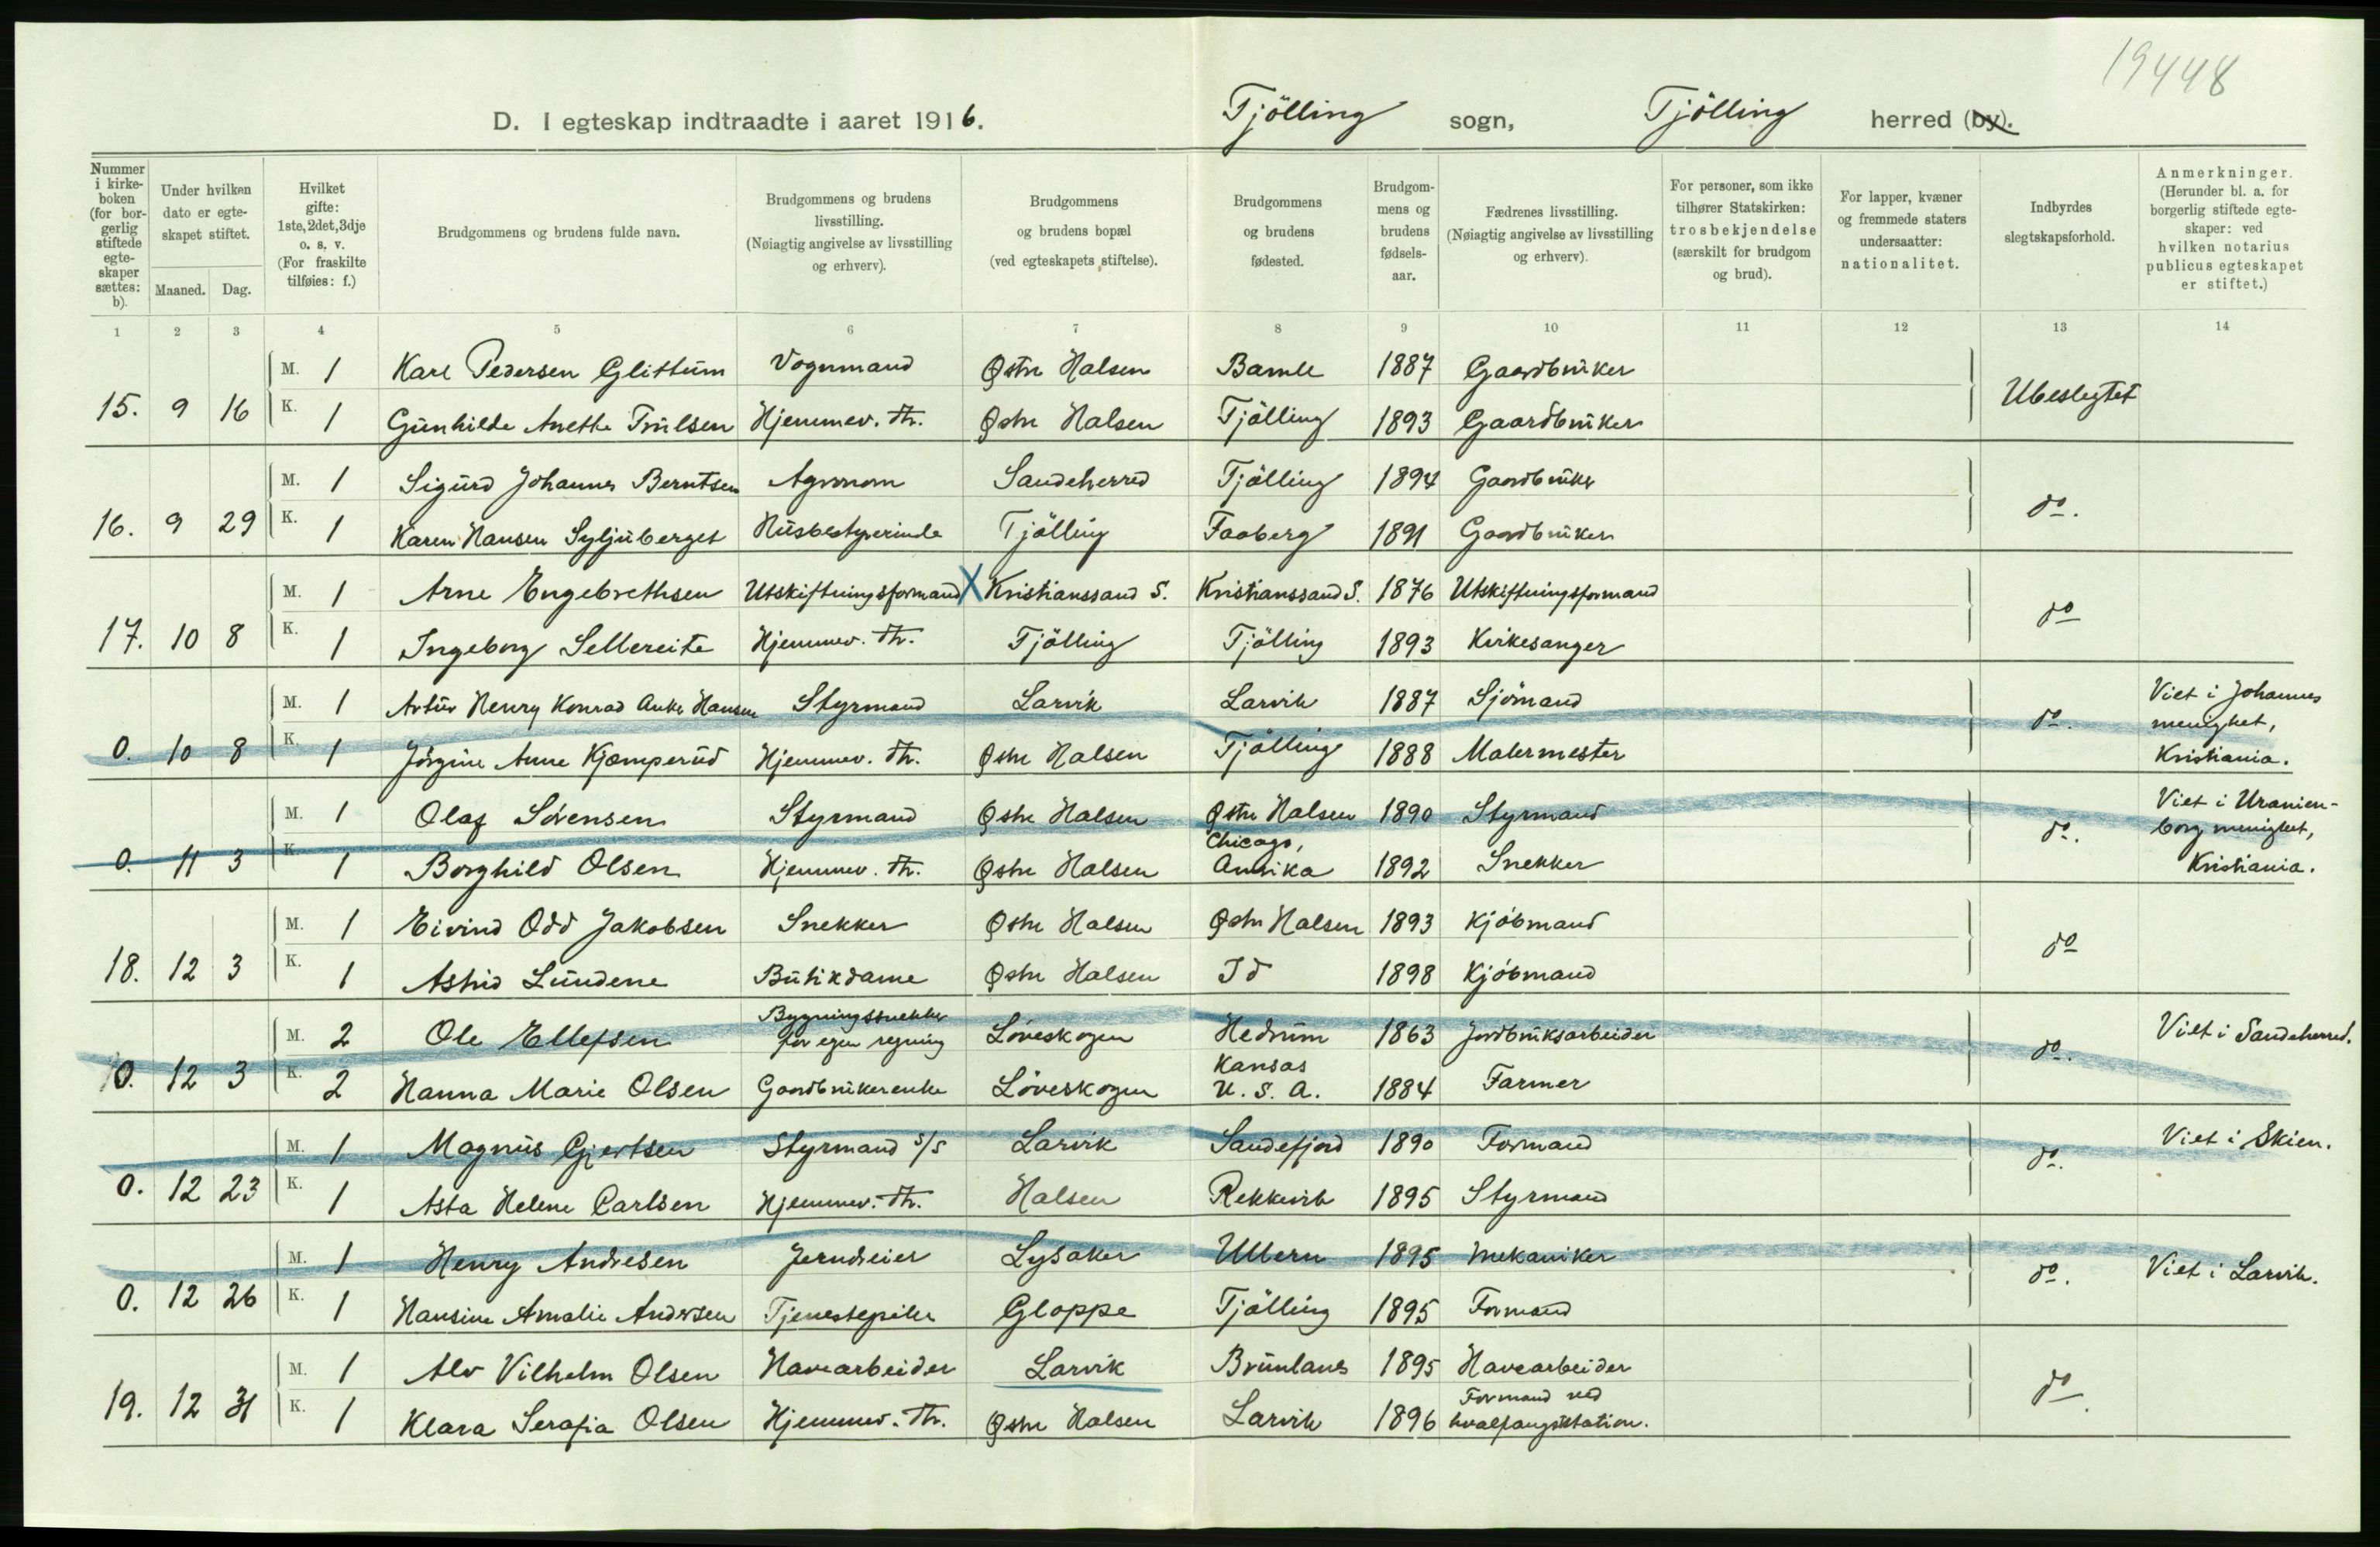 19448
D. I egteskap indtraadte i aaret 1916. Tjölling sogn, Tjölling herred (by).
Nummer i kirkeboken (for borgerlig stiftede egteskaper sættes: b).
Under hvilken dato er egteskapet stiftet.
Maaned. Dag.
Hvilket gifte: 1ste, 2det, 3dje o. s. v. (For fraskilte tilføies: f.)
Brudgommens og brudens fulde navn.
Brudgommens og brudens livsstilling. (Nøiagtig angivelse av livsstilling og erhverv).
Brudgommens og brudens bopæl (ved egteskapets stiftelse).
Brudgommens og brudens fødested.
Brudgommens og brudens fødselsaar.
Fædrenes livsstilling. (Nøiagtig angivelse av livsstilling og erhverv).
For personer, som ikke tilhører Statskirken: trosbekjendelse (særskilt for brudgom og brud).
For lapper, kvæner og fremmede staters undersaatter: nationalitet.
Indbyrdes slegtskapsforhold.
Anmerkninger. (Herunder bl. a. for borgerlig stiftede egteskaper: ved hvilken notarius publicus egteskapet er stiftet.)
1 2 3 4 5 6 7 8 9 10 11 12 13 14
M. 1 Karl Pedersen Glittum Vognmand Østre Halsen Bamle 1887 Gaardbruker
15. 9 16 K. 1 Gunhilde Anethe Trulsen Hjemmev. Dtr. Østre Halsen Tjölling 1893 Gaardbruker Ubeslegtet
M. 1 Sigurd Johannes Berntsen Agronom Sandeherred Tjölling 1894 Gaardbruker
16. 9 29 K. 1 Karen Hansen Syljuberget Husbestyrerinde Tjölling Faaberg 1891 Gaardbruker do.
M. 1 Arne Engebrethsen Utskiftningsformand X Kristianssand S. Kristianssand S. 1876 Utskiftningsformand
17. 10 8 K. 1 Ingeborg Sellereite Hjemmev. Dtr. Tjölling Tjölling 1893 Kirkesanger do
M. 1 Artur Henry Konrad Anker Hansen Styrmand Larvik Larvik 1887 Sjömand
0. 10 8 K. 1 Jörgine Anne Kjæmperud Hjemmev. Dtr. Østre Halsen Tjölling 1888 Malermester do. Viet i Johannes menighet, Kristiania.
M. 1 Olaf Sörensen Styrmand Østre Halsen Østre Halsen 1890 Styrmand
0. 11 3 K. 1 Borghild Olsen Hjemmev. Dtr. Østre Halsen Chicago, Amrika 1892 Snekker do. Viet i Uranienborg menighet, Kristiania.
M. 1 Eivind Odd Jakobsen Snekker Østre Halsen Østre Halsen 1893 Kjöbmand
18. 12 3 K. 1 Astrid Lundene Butikdame Østre Halsen Id 1898 Kjöbmand do
M. 2 Ole Ellefsen Bygningssnekker for egen regning Löveskogen Hedrum 1863 Jordbruksarbeider
0. 12 3 K. 2 Hanna Marie Olsen Gaardbrukerenke Löveskogen Kansas U. S. A. 1884 Farmer do. Viet i Sandeherred.
M. 1 Magnus Gjertsen Styrmand S/S Larvik Sandefjord 1890 Formand
0. 12 23 K. 1 Asta Helene Carlsen Hjemmev. Dtr. Halsen Rekkevik 1895 Styrmand do. Viet i Skien.
M. 1 Henry Andresen Jerndreier Lysaker Ullern 1895 Mekaniker
0. 12 26 K. 1 Hansine Amalie Andersen Tjenestepike Gloppe Tjölling 1895 Formand do. Viet i Larvik.
M. 1 Alv Vilhelm Olsen Havearbeider Larvik Brunlanes 1895 Havearbeider
19. 12 31 K. 1 Klara Serafia Olsen Hjemmev. Dtr. Østre Halsen Larvik 1896 Formand ved hvalfangststation. do.